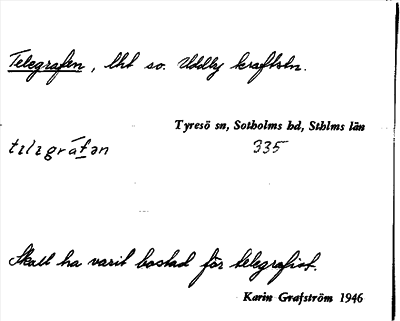 Telegrafen, lht so. Uddby kraftstn.
Tyresö sn, Sotholms hd, Sthlms län
tılıgráfən 335
Skall ha varit bostad för telegrafist.
Karin Grafström 1946